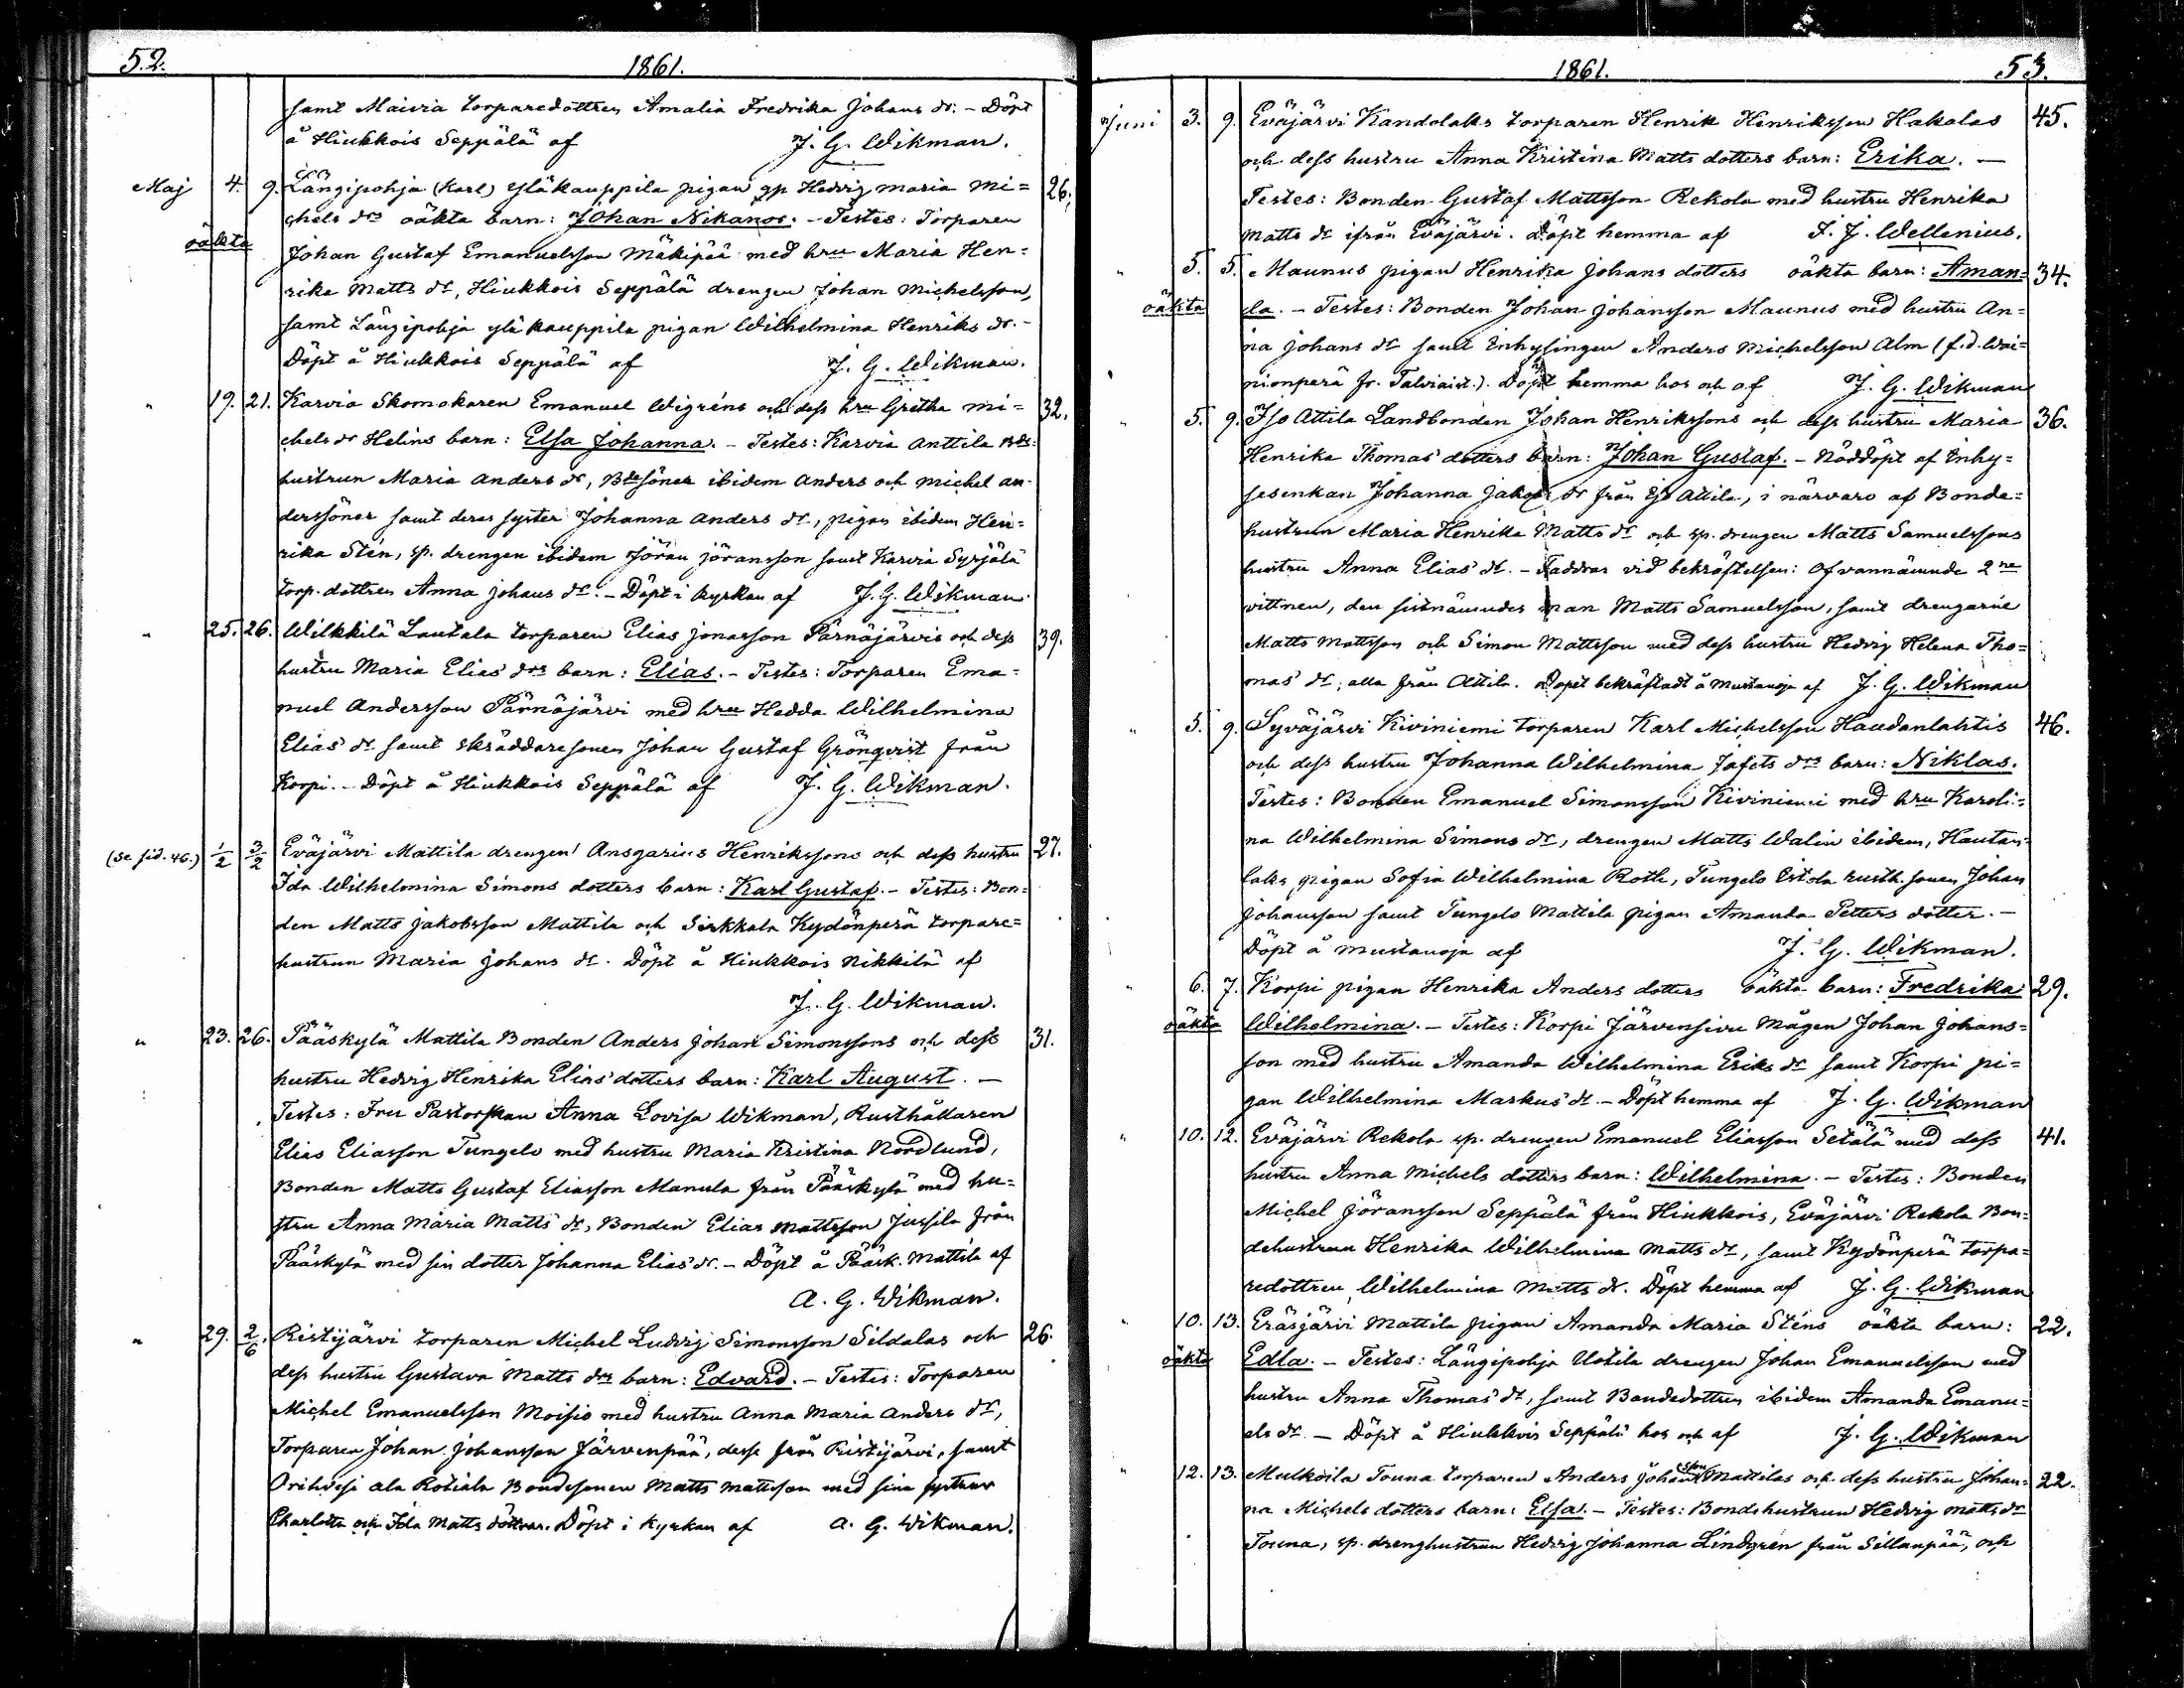 52.
1861.
samt Maivia torparedottren Amalia Fredrika Johans dr. – Döpt
å Hiukkois Seppälä af J. G. Wikman.
Maj 4. 9. Längipohja (Karl) Yläkauppila pigan Hedvig Maria Mi= 26.
chels drs oäkta barn: Johan Nikanor. – Testes: Torparen
oäkta
Johan Gustaf Emanuelsson Mäkipää med hru Maria Hen=
rika Matts dr, Hiukkois Seppälä drengen Johan Michelsson,
samt Längipohja yläkauppila pigan Wilhelmina Henriks dr. –
Döpt å Hiukkois Seppälä af J. G. Wikman.
" 19. 21. Karvia Skomakaren Emanuel Wigréns och dess hru Gretha Mi= 32.
chels dr Helins barn: Elsa Johanna. – Testes: Karvia Anttila Bde
hustrun Maria Anders dr, Bdesöner ibidem Anders och Michel An=
derssöner samt deras syster Johanna Anders dr, pigan ibidem Hen=
rika Stén, sp. drengen ibidem Jöran Jöransson samt Karvia Syrjälä
torp. dottren Anna Johans dr. – Döpt i kyrkan af J. G. Wikman
" 25. 26. Wilkkilä Lautala torparen Elias Jonasson Pärnäjärvis och dess 39.
hustru Maria Elias' drs barn: Elias. – Testes: Torparen Ema=
nuel Andersson Pärnäjärvi med hru Hedda Wilhelmina
Elias' dr samt skräddaresonen Johan Gustaf Grönqvist från
Korpi. – Döpt å Hiukkois Seppälä af J. G. Wikman.
(se sid. 46.) 1/2 3/2 Eväjärvi Mattila drengen Ansgarius Henrikssons och dess hustru 27.
Ida Wilhelmina Simons dotters barn: Karl Gustaf. – Testes: Bon=
den Matts Jakobsson Mattila och Sirkkala Kydönperä torpare=
hustrun Maria Johans dr. Döpt å Hiukkois Nikkilä af
J. G. Wikman.
" 23. 26. Pääskylä Mattila Bonden Anders Johan Simonssons och dess 31.
hustru Hedvig Henrika Elias' dotters barn: Karl August. –
Testes: Fru Pastorskan Anna Lovisa Wikman, Rusthållaren
Elias Eliasson Tungelo med hustru Maria Kristina Nordlund,
Bonden Matts Gustaf Eliasson Manula från Pääskylä med hu=
stru Anna Maria Matts dr, Bonden Elias Mattsson Jussila från
Pääskylä med sin dotter Johanna Elias' dr. – Döpt å Pääsk. Mattila af
A. G. Wikman.
" 29. 2/6. Ristijärvi torparen Michel Ludvig Simonsson Sildalas och 26.
dess hustru Gustava Matts drs barn: Edvard. – Testes: Torparen
Michel Emanuelsson Moisio med hustru Anna Maria Anders dr,
Torparen Johan Johansson Järvenpää, desse från Ristijärvi, samt
Orihvesi ala Rotiala Bondesonen Matts Mattsson med sina systrar
Charlotta och Ida Matts döttrar. Döpt i kyrkan af A. G. Wikman.
1861.
53.
Juni 3. 9. Eväjärvi Kandolaks torparen Henrik Henriksson Hakalas 45.
och dess hustru Anna Kristina Matts dotters barn: Erika. –
Testes: Bonden Gustaf Mattsson Rekola med hustru Henrika
Matts dr ifrån Eväjärvi. Döpt hemma af F. J. Wellenius.
" 5. 5. Maunus pigan Henrika Johans dotters oäkta barn: Aman= 34.
oäkta
da. – Testes: Bonden Johan Johansson Maunus med hustru An=
na Johans dr samt Inhysingen Anders Michelsson Alm (f.d. Wai=
nionperä fr. Talviaist.). Döpt hemma hos och af J. G. Wikman
" 5. 9. Iso Attila Landbonden Johan Henrikssons och dess hustru Maria 36.
Henrika Thomas' dotters barn: Johan Gustaf. – Nöddöpt af Inhy=
sesenkan Johanna Jakobs dr från Iso Attila, i närvaro af Bonde=
hustrun Maria Henrika Matts dr och sp. drengen Matts Samuelssons
hustru Anna Elias' dr. – Faddrar vid bekräftelsen: Ofvannämnde 2ne
vittnen, den sistnämndes man Matts Samuelsson, samt drengarne
Matts Mattsson och Simon Mattsson med dess hustru Hedvig Helena Tho=
mas' dr, alla från Attila. Dopet bekräftadt å Mustanoja af J. G. Wikman
" 5. 9. Syväjärvi Kiviniemi torparen Karl Michelsson Haudanlahtis 46.
och dess hustru Johanna Wilhelmina Jafets drs barn: Niklas.
Testes: Bonden Emanuel Simonsson Kiviniemi med hru Karoli=
na Wilhelmina Simons dr, drengen Matts Walin ibidem, Hautan=
laks pigan Sofia Wilhelmina Roth, Tungelo Eistola rusth. sonen Johan
Johansson samt Tungelo Mattila pigan Amanda Petters dotter. –
Döpt å Mustanoja af J. G. Wikman.
" 6. 7. Korpi pigan Henrika Anders dotters oäkta barn: Fredrika 29.
oäkta
Wilhelmina. – Testes: Korpi Järvensivu Mågen Johan Johans=
son med hustru Amanda Wilhelmina Eriks dr samt Korpi pi=
gan Wilhelmina Markus' dr. – Döpt hemma af J. G. Wikman
" 10. 12. Eväjärvi Rekola sp. drengen Emanuel Eliasson Setälä med dess 41.
hustru Anna Michels dotters barn: Wilhelmina. – Testes: Bonden
Michel Jöransson Seppälä från Hiukkois, Eväjärvi Rekola Bon=
dehustrun Henrika Wilhelmina Matts dr, samt Kydönperä torpa=
redottren Wilhelmina Matts dr. Döpt hemma af J. G. Wikman
" 10. 13. Eräsjärvi Mattila pigan Amanda Maria Sténs oäkta barn: 22.
oäkta
Edla. – Testes: Längipohja Uotila drengen Johan Emanuelsson med
hustru Anna Thomas' dr, samt Bondedottren ibidem Amanda Emanu=
els dr. – Döpt å Hiukkois Seppälä hos och af J. G. Wikman
" 12. 13. Mulkoila Touna torparen Anders Johansson Mattilas och dess hustru Johan= 22.
na Michels dotters barn: Elsa. – Testes: Bondehustrun Hedvig Matts dr
Touna, sp. drenghustrun Hedvig Johanna Lindgren från Sillanpää, och